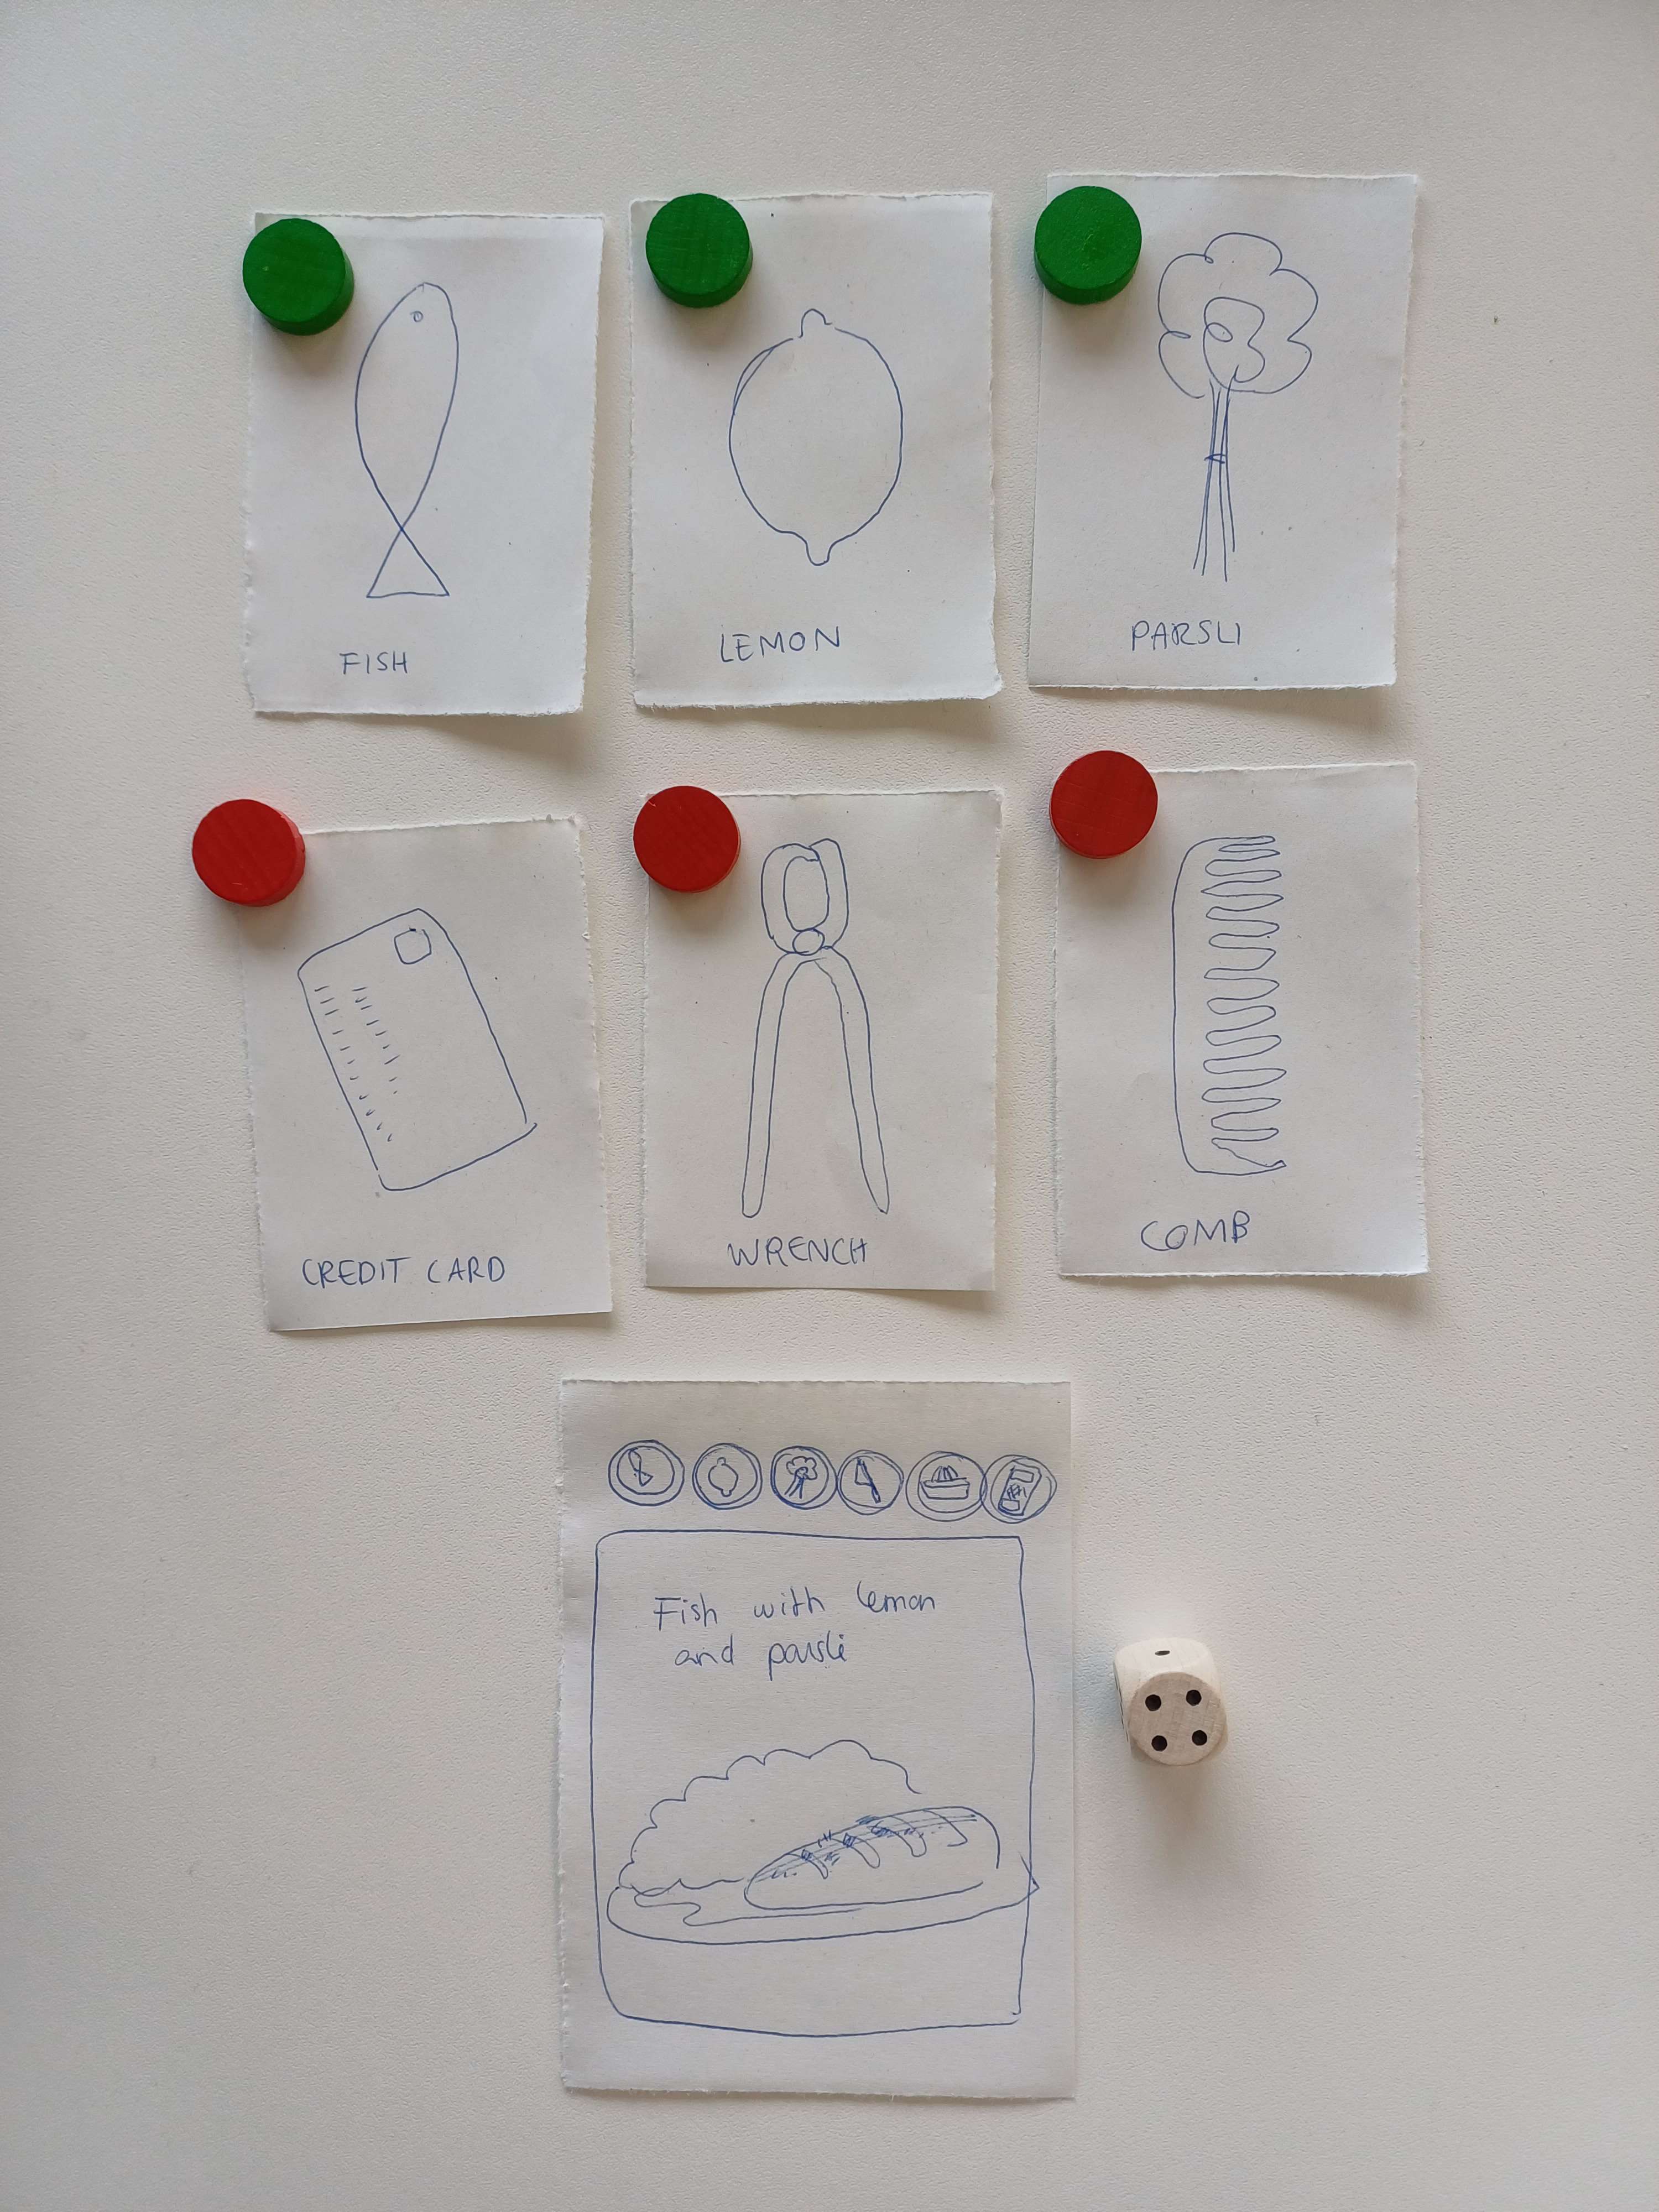 FISH
LEMON
PARSLI
CREDIT CARD
WRENCH
COMB
Fish with lemon
and parsli